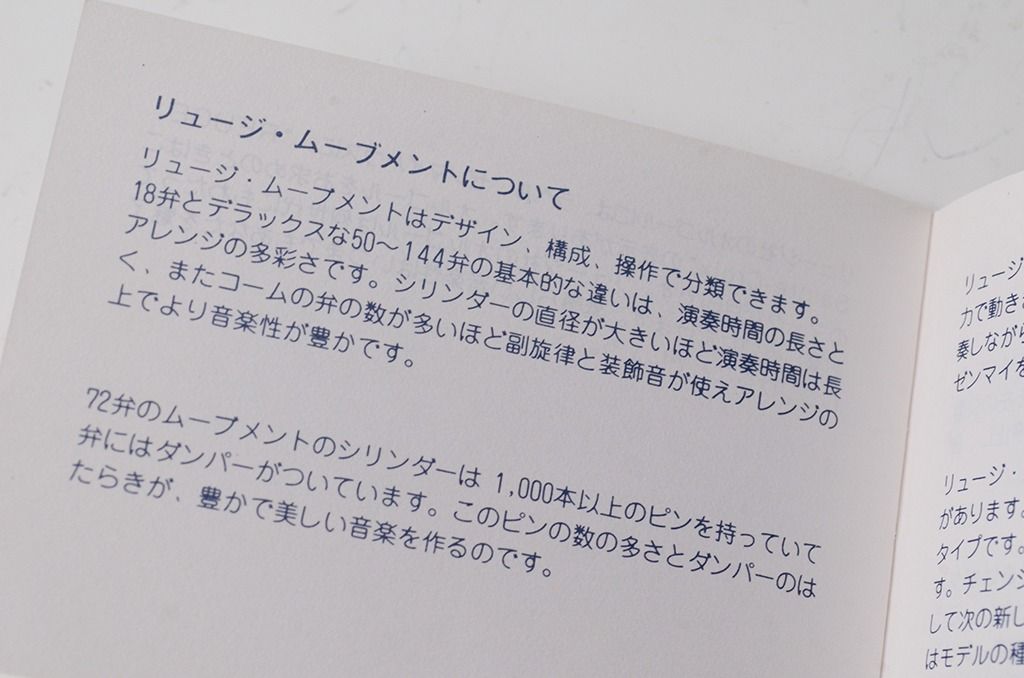 リュージ・ムーブメントについて
リュージ・ムーブメントはデザイン、構成、操作で分類できます。
18弁とデラックスな50〜144弁の基本的な違いは、演奏時間の長さと
アレンジの多彩さです。シリンダーの直径が大きいほど演奏時間は長
く、またコームの弁の数が多いほど副旋律と装飾音が使えアレンジの
上でより音楽性が豊かです。
72弁のムーブメントのシリンダーは 1,000本以上のピンを持っていて
弁にはダンパーがついています。このピンの数の多さとダンパーのは
たらきが、豊かで美しい音楽を作るのです。
リュージ
力で動き
奏しなが
ゼンマイを
リュージ・
があります。
タイプです。
す。チェン
して次の新し
はモデルの種